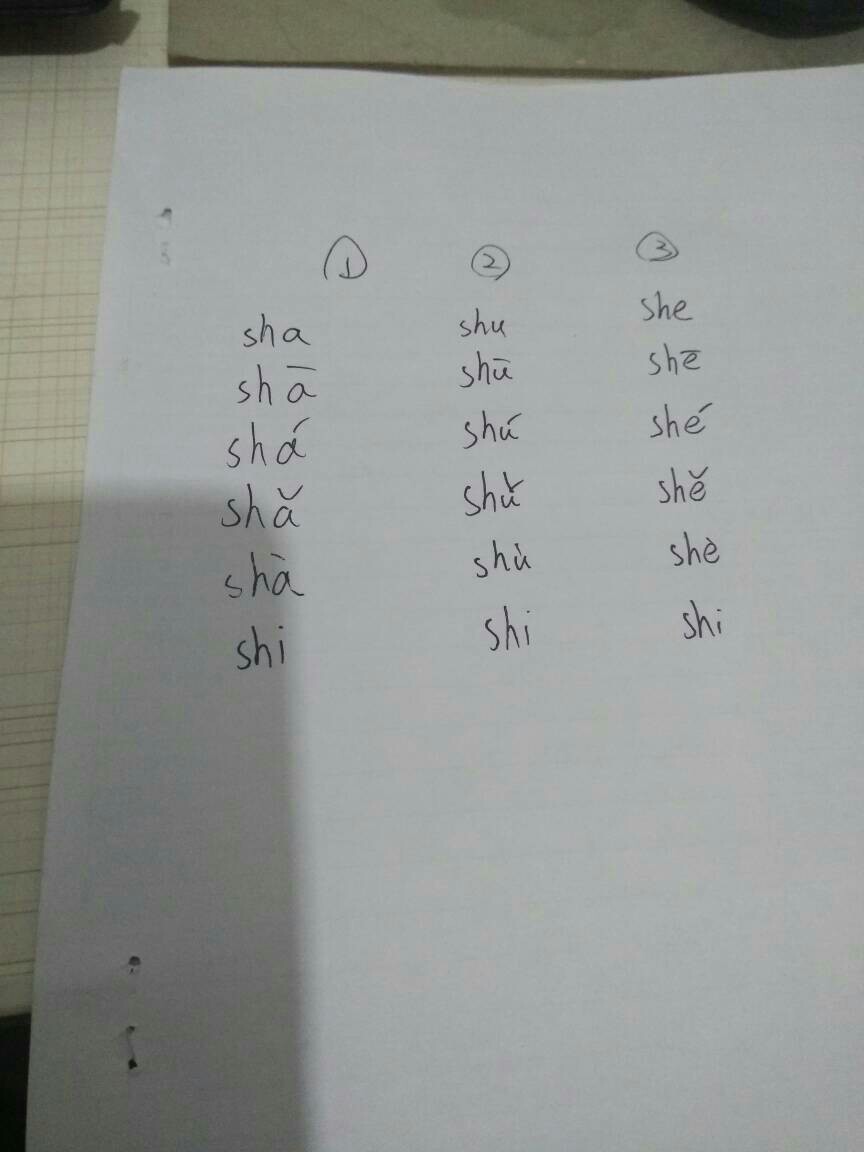 ① ② ③
sha shu she
shā shū shē
shá shú shé
shǎ shǔ shě
shà shù shè
shi shi shi